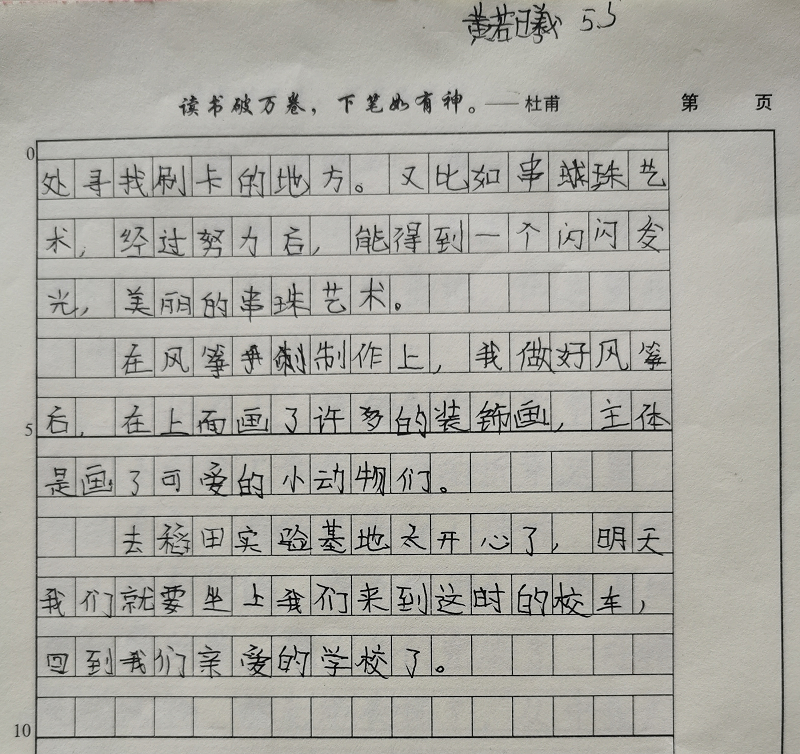 黄若曦 5.5
读书破万卷，下笔如有神。——杜甫 第 页
0
处寻找刷卡的地方。又比如串球珠艺
术，经过努力后，能得到一个闪闪发
光，美丽的串珠艺术。
在风筝制作上，我做好风筝
5
后，在上面画了许多的装饰画，主体
是画了可爱的小动物们。
去稻田实验基地太开心了，明天
我们就要坐上我们来到这时的校车，
回到我们亲爱的学校了。
10